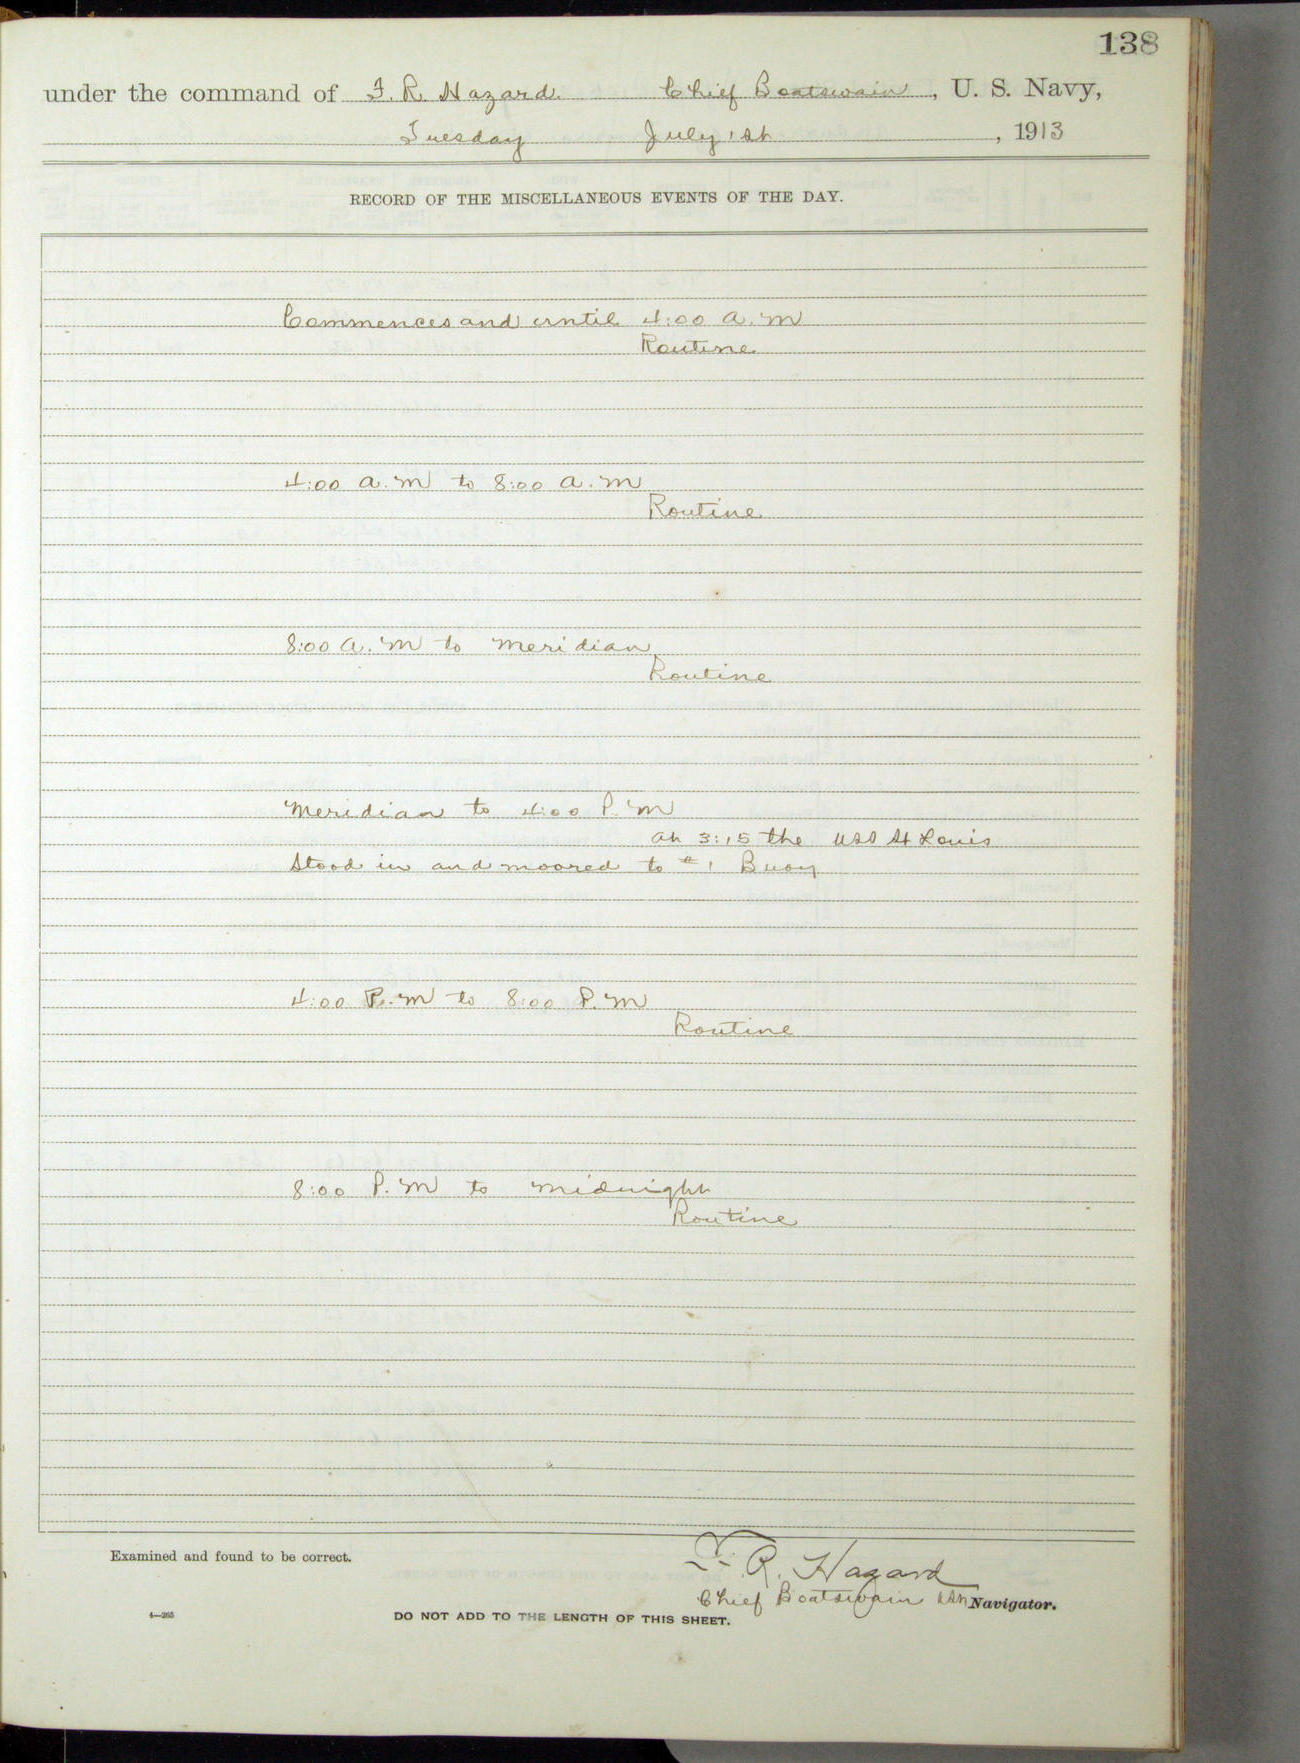 138
under the command of F. R. Hazard Chief Boatswain, U. S. Navy,
Tuesday July 1st, 1913
RECORD OF THE MISCELLANEOUS EVENTS OF THE DAY.
Commences and until 4:00 a.m
Routine
4:00 a.m to 8:00 a.m
Routine
8:00 a.m to meridian
Routine
Meridian to 4:00 P.m
At 3:15 the USS St Louis
Stood in and moored to #1 Buoy
4:00 P.m to 8:00 P.m
Routine
8:00 P.m to midnight
Routine
Examined and found to be correct.
F. R. Hazard
Chief Boatswain USN Navigator.
4—265
DO NOT ADD TO THE LENGTH OF THIS SHEET.